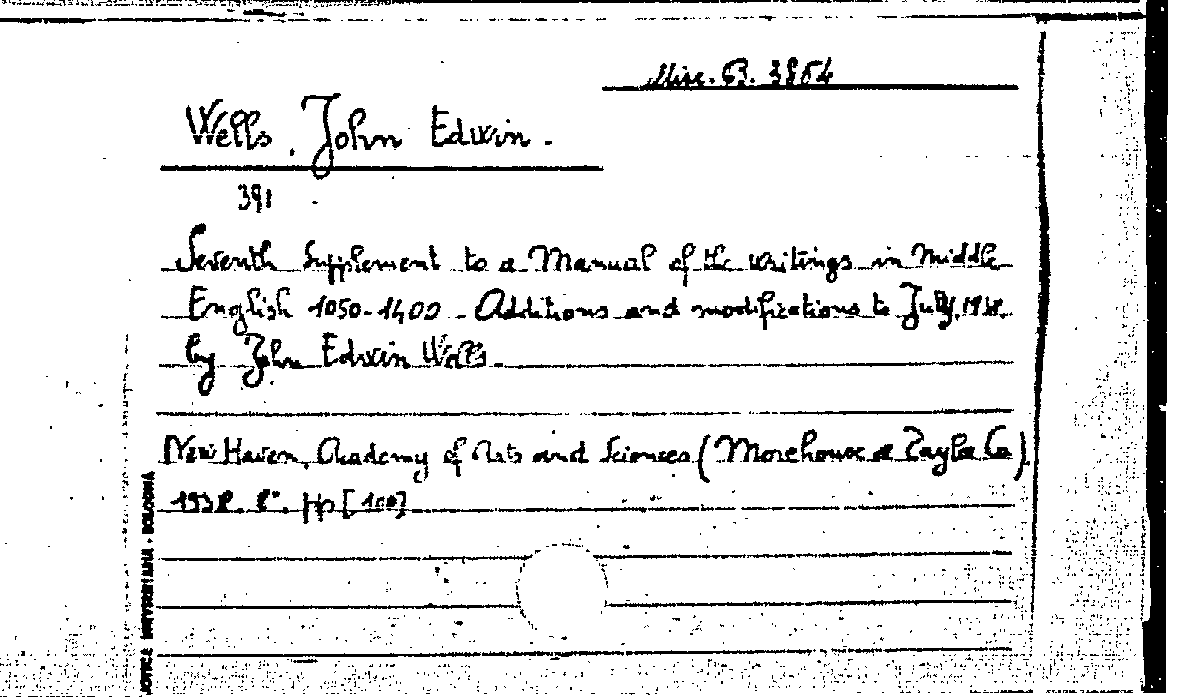 Misc. B. 3864
Wells, John Edwin.
391
Seventh Supplement to a Manual of the writings in Middle
English 1050-1400 - Additions and modifications to July, 1938.
by John Edwin Wells.
New Haven, Academy of Arts and Sciences (Morehouse & Taylor Co)
1938. 8°. pp [100]
BOLOGNA